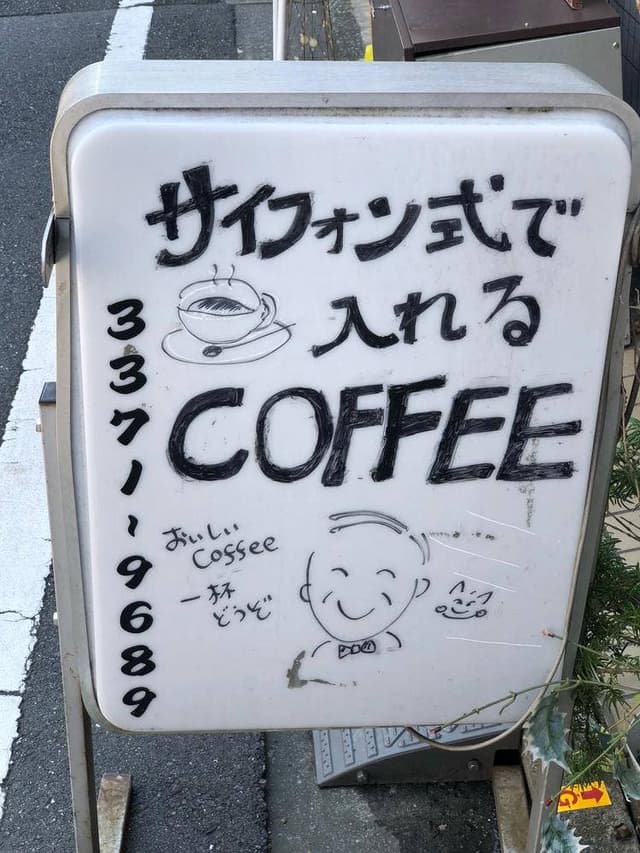 サイフォン式で
入れる
COFFEE
3371-9689
おいしい
Coffee
一杯
どうぞ